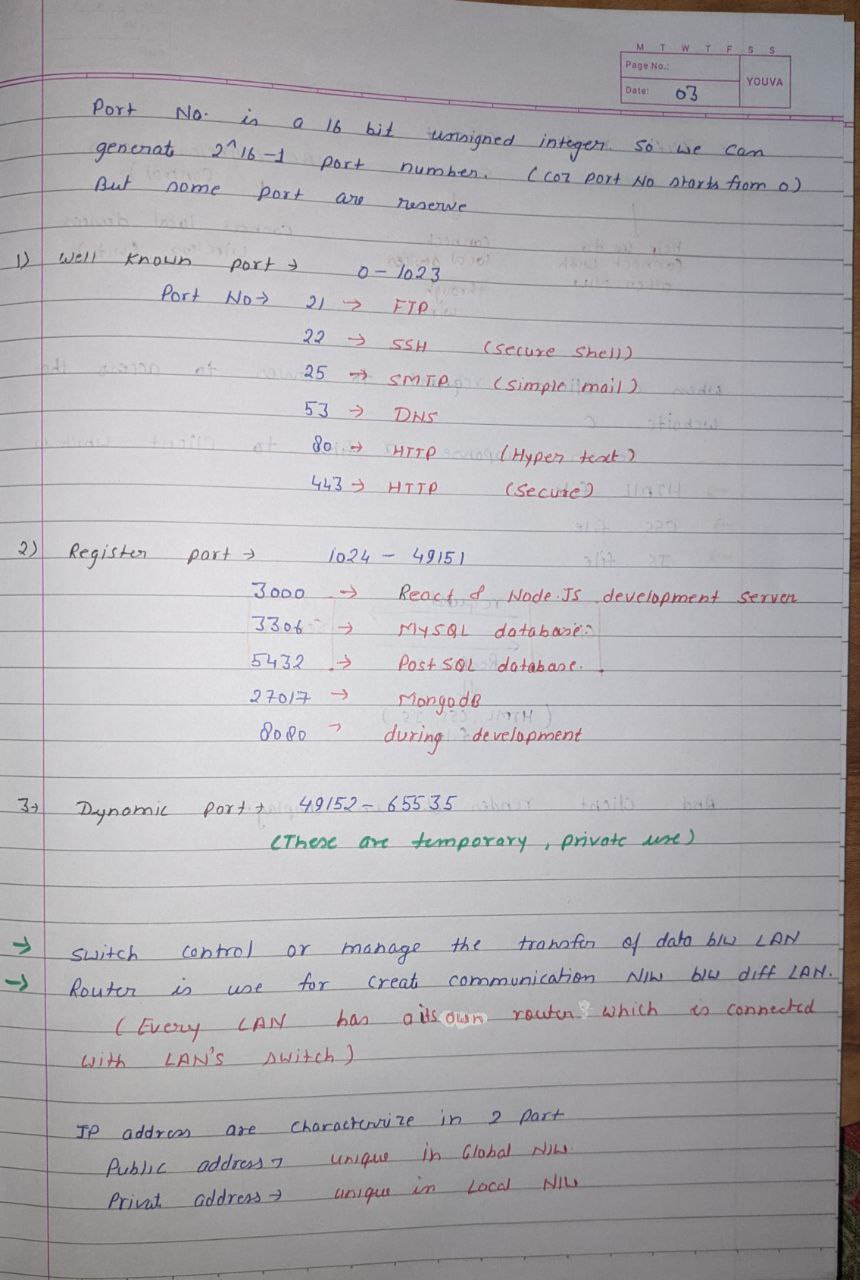 M T W T F S S
Page No.:
Date: 03
YOUVA
Port No. is a 16 bit unsigned integer. So we can
generate 2^16-1 port number. (coz port No starts from 0)
But some port are reserve
1) Well known port → 0 - 1023
Port No → 21 → FTP
22 → SSH (Secure Shell)
25 → SMTP (simple mail)
53 → DNS
80 → HTTP (Hyper text)
443 → HTTP (Secure)
2) Register port → 1024 - 49151
3000 → React & Node.JS development server
3306 → MySQL database.
5432 → PostSQL database.
27017 → MongodB
8080 → during development
3→ Dynamic port → 49152 - 65535
(These are temporary, private use)
→ switch control or manage the transfer of data b/w LAN
→ Router is use for creat communication N/W b/w diff LAN.
(Every LAN has a its own router which is connected
with LAN's switch)
IP address are characterize in 2 part
Public address → unique in Global N/W.
Privat address → unique in Local N/W